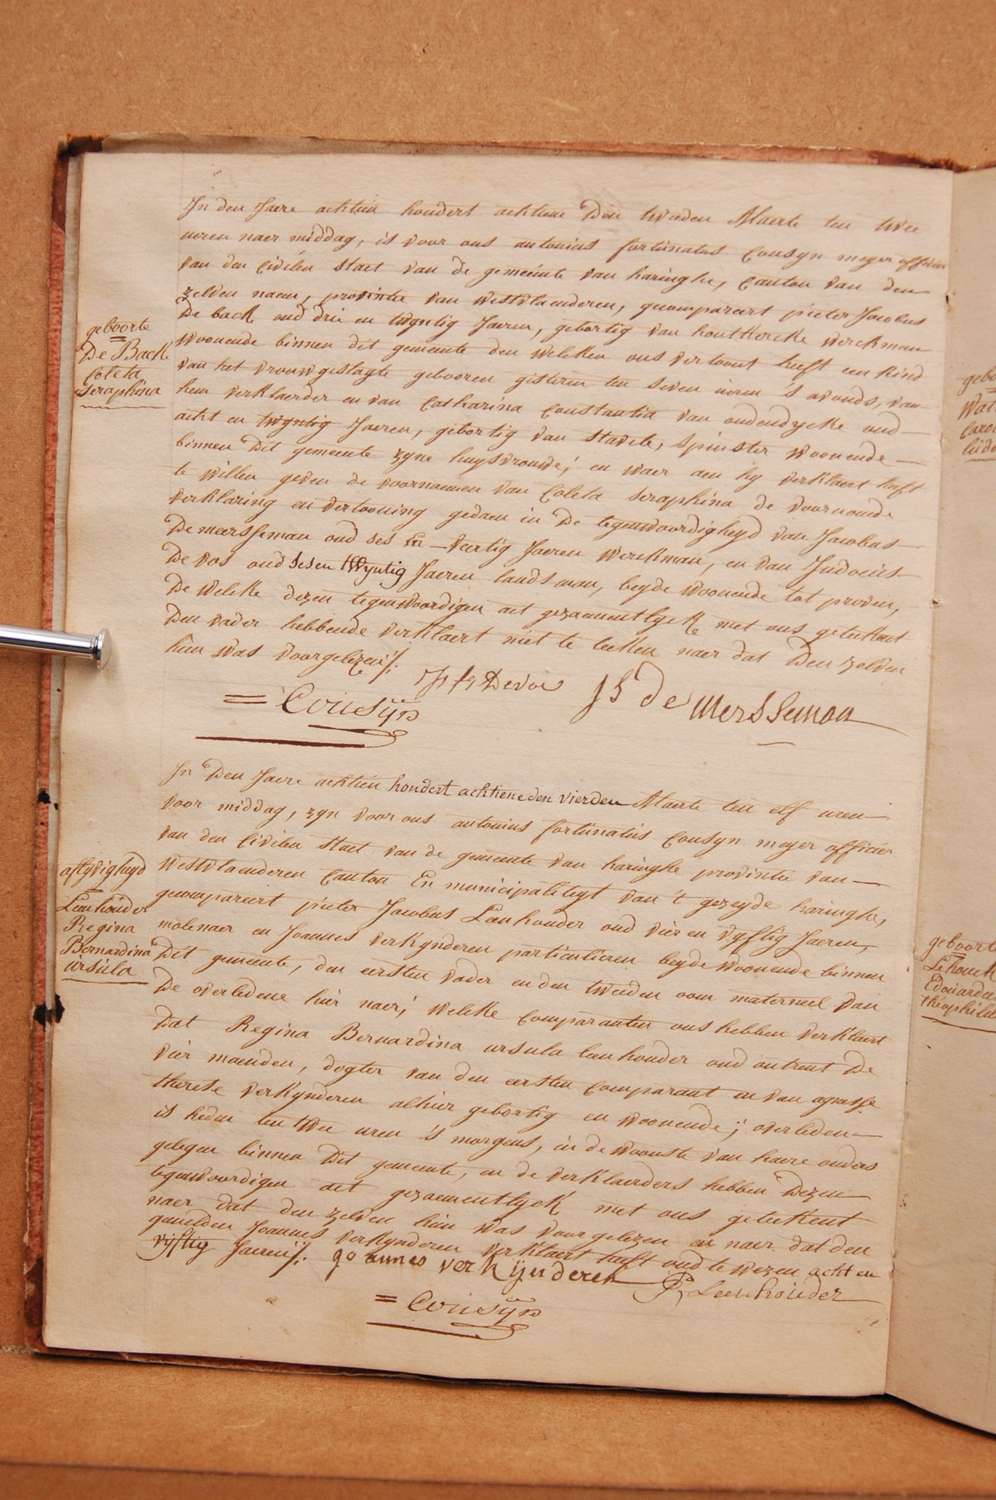 In den Jaere achtien hondert achtiene Den tweeden Maerte ten twee
ueren naer middag, is voor ons antonius fortunatus Cousyn meyer officier
van den Civilen staet van de gemeente van haringhe, Canton van den
zelven naem, provintie van westvlaenderen, gecompareert pieter Jacobus
De back oud drij en twyntig Jaeren, gebortig van houtkercke werckman
woonende binnen dit gemeente den welcken ons vertoont heeft een kind
van het vrouwgeslagte gebooren gisteren ten seven ueren 's avonds, van
hem verklaerder en van Catharina Constantia van oudendycke oud
acht en twyntig Jaeren, gebortig van stavele, spinster woonende
binnen dit gemeente zyne huysvrouwe; en waer aen hy verklaert heeft
te willen geven de voornaemen van Coleta Seraphina de voornoemde
verklaring en vertooning gedaen in De tegenwoordigheyd van Jacobus
De meersseman oud ses En veertig Jaeren werckman, en van Judocus
De vos oud ses en twyntig Jaeren landsman, beyde woonende tot proven,
De welcke dezen tegenwoordigen act gezaementlyck met ons geteekent
Den vader hebbende verklaert niet te teeken naer dat Den zelven
hun was voorgelezen /.
geboorte
De Back
Coleta
Seraphina
Devos
De Mersseman
= Cousÿn
In Den Jaere achtien hondert achtiene den vierden Maerte ten elf ueren
voor middag, zyn voor ons antonius fortunatus Cousyn meyer officier
van den Civilen staet van de gemeente van haringhe provintie van
westvlaenderen Canton En municipaliteyt van 't gezeyde haringhe,
gecompareert pieter Jacobus Leuhouder oud vier en vyftig Jaeren,
molenaer en Joannes verkynderen particulieren beyde woonende binnen
Dit gemeente, den eersten vader en den tweeden oom maternel van
De overledene hier naer; welcke comparanten ons hebben verklaert
Dat Regina Bernardina ursula leuhouder oud ontrent De
vier maenden, dogter van den eersten comparant en van
therese verkynderen alhier gebortig en woonende; overleden
is heden ten twee uren 's morgens, in de wooniste van haere ouders
gelegen binnen Dit gemeente, en de verklaerders hebben Dezen
tegenwoordigen act gezaementlyck met ons geteekent
naer dat den zelven hun was voorgelezen en naer dat den
gemelden Joannes verkynderen verklaert heeft oud te wezen acht en
vijftig Jaeren /.
aflyvigheyd
Leuhouder
Regina
Bernardina
ursula
joannes verkijnderen
Leuhouder
= Cousÿn
geboorte
Lehouck
Edouardus
theophilus